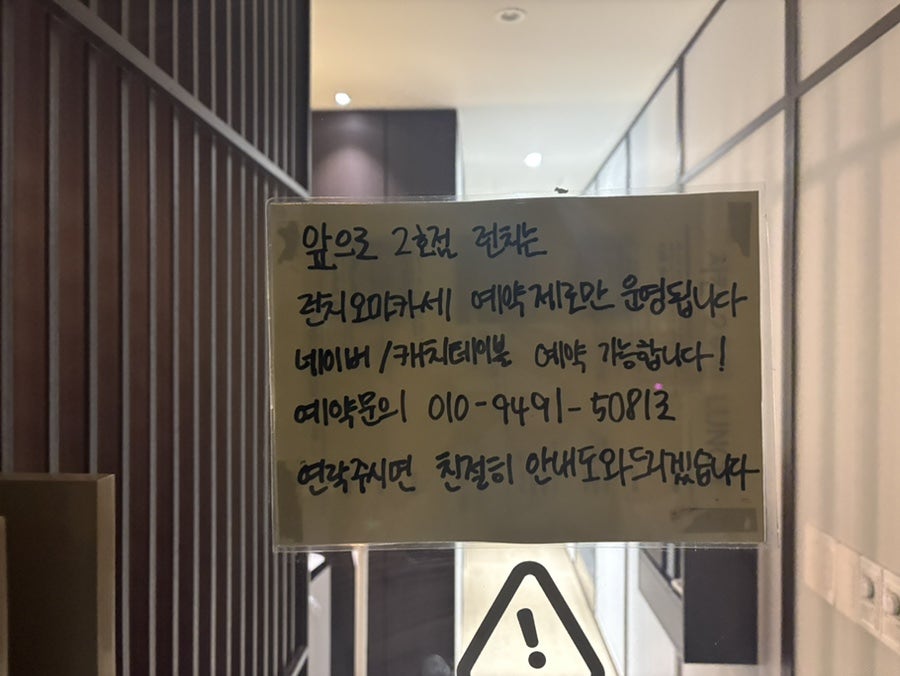 앞으로 2호점 런치는
런치오마카세 예약제로만 운영됩니다
네이버/캐치테이블 예약 가능합니다!
예약문의 010-9491-5081로
연락주시면 친절히 안내도와드리겠습니다
!